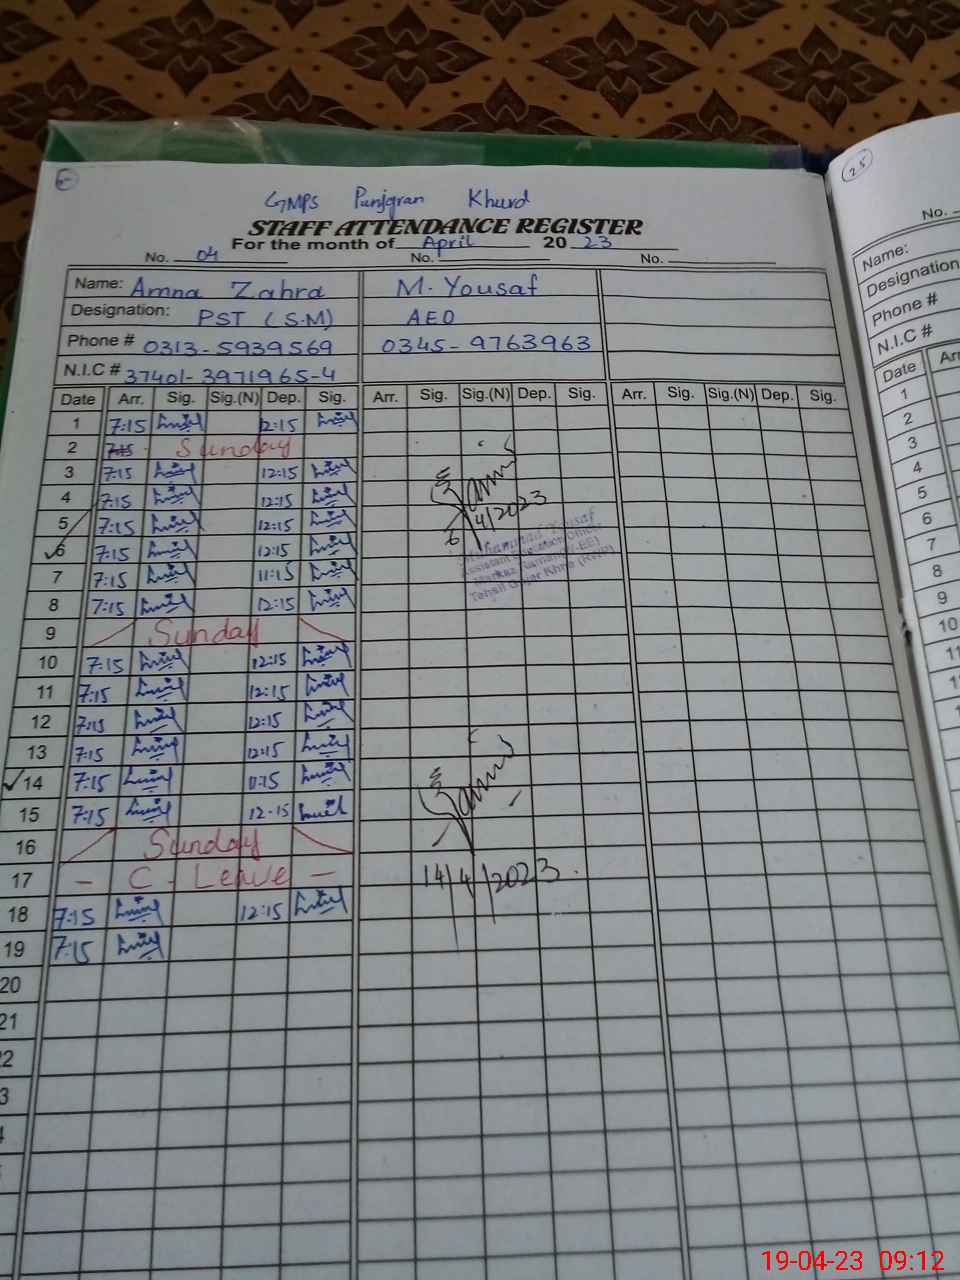 GMPS Punjgran Khurd
STAFF ATTENDANCE REGISTER
For the month of April 20 23
No. 04 No. No.
Name: Amna Zahra M. Yousaf
Designation: PST (S.M) AEO
Phone # 0313-5939569 0345-9763963
N.I.C # 37401-3971965-4
Date Arr. Sig. Sig.(N) Dep. Sig. Arr. Sig. Sig.(N) Dep. Sig. Arr. Sig. Sig.(N) Dep. Sig.
1 7:15 12:15
2 7:15 Sunday
3 7:15 12:15
4 7:15 12:15
5 7:15 12:15
6 7:15 12:15
7 7:15 11:15
8 7:15 12:15
9 Sunday
10 7:15 12:15
11 7:15 12:15
12 7:15 12:15
13 7:15 12:15
14 7:15 11:15
15 7:15 12:15
16 Sunday
17 - C - Leave -
18 7:15 12:15
19 7:15
20
21
6/4/2023
Muhammad Yousaf
Assistant Education Officer
Tehsil Gujar Khan (RWP)
14/4/2023.
25
No.
Name:
Designation
Phone #
N.I.C #
Date Arr
1
2
3
4
5
6
7
8
9
10
11
12
19-04-23 09:12